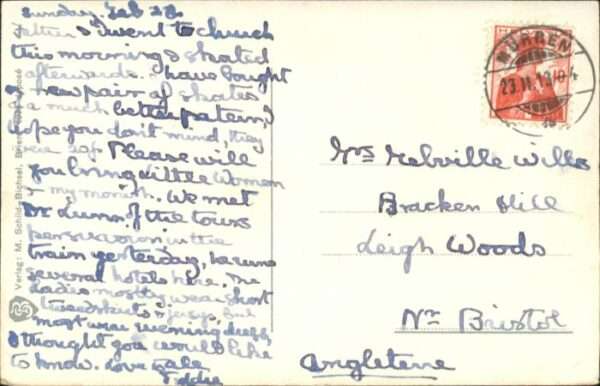 Sunday. Feb 28.
I went to church
this morning & skated
afterwards. I have bought
a new pair of skates
of a much better pattern, I
hope you don't mind, they
were 20f. Please will
you bring Little Women
& my monish. We met
Dr Lunn of the tours
in the
train yesterday, he runs
several hotels here. The
ladies mostly wear short
tweed skirts & jerseys, but
most wear evening dress
I thought you would like
to know. Love to all
Eddie
Verlag: M. Schild-Bichsel, Brienz
MÜRREN
23.II.10
Mrs Melville Wills
Bracken Hill
Leigh Woods
Nr. Bristol
Angleterre